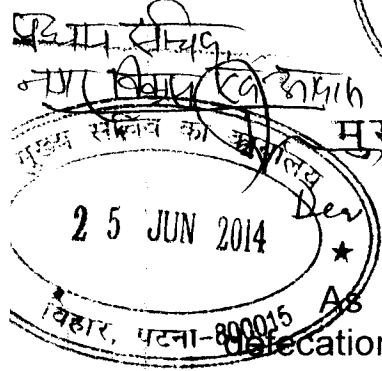 प्रधान सचिव,
नगर विकास एवं आवास
मुख्य सचिव का कार्यालय
मु
25 JUN 2014
Dear
बिहार, पटना-800015
As
defecation